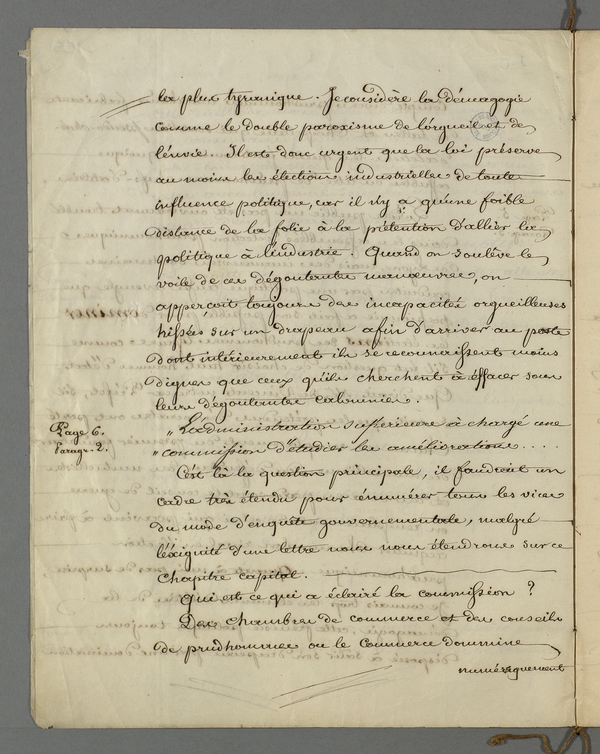 les plus tyranique. Je considère la démagogie
comme le double paroxisme de l'orgueil et de
l'envie. Il est donc urgent que la loi préserve
au moins les élections industrielles de toute
influence politique, car il n'y a qu'une foible
distance de la folie à la prétention d'allier la
politique à l'industrie. Quand on soulêve le
voile de ces dégoutantes manœuvres, on
apperçoit toujours des incapacités orgueilleuses
hissées sur un drapeau afin d'arriver au poste
dont intérieurement ils se reconnaissent moins
dignes que ceux qu'ils cherchent à éffacer sous
leurs dégoutantes calomnies.
Page 6.
Paragr. 2.
„ L'administration supérieure à chargé une
„ commission d'étudier les améliorations ....
C'est là la question principale, il faudrait un
cadre très étendu pour énumérer tous les vices
du mode d'enquête gouvernementale, malgré
l'éxiguité d'une lettre nous nous étendrons sur ce
chapitre capital.
Qui est ce qui a éclairé la commission ?
Des chambres de commerce et des conseils
de prudhommes ou le commerce dommine
numériquement